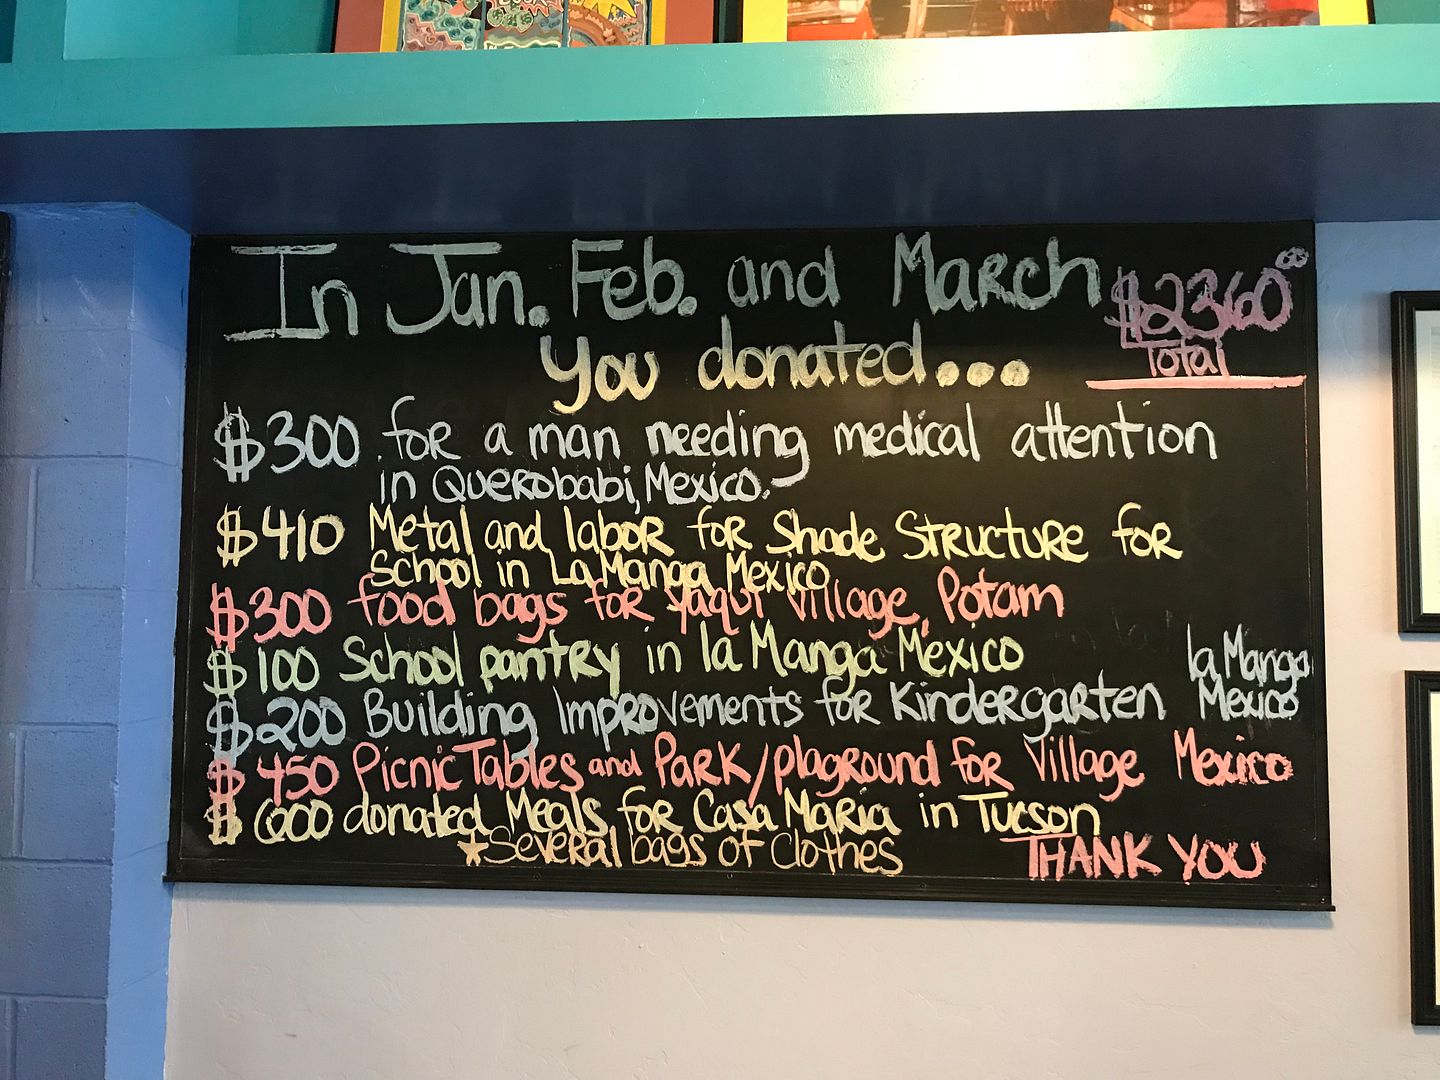 In Jan. Feb. and March
$2360.00
Total
You donated...
$300 for a man needing medical attention
in Querobabi, Mexico.
$410 Metal and labor for Shade Structure for
School in La Manga Mexico
$300 food bags for Yaqui Village, Potam
$100 School pantry in la Manga Mexico
$200 Building Improvements for Kindergarten la Manga
Mexico
$450 Picnic Tables and Park/playground for Village Mexico
$600 donated Meals for Casa Maria in Tucson
★Several bags of Clothes
THANK YOU